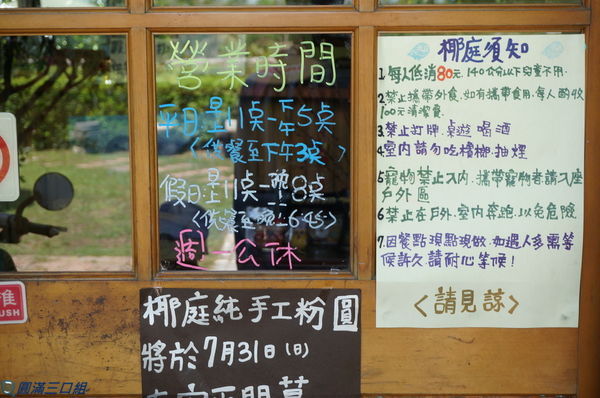 營業時間
平日早11點-下午5點
(供餐至下午3點)
假日早11點-晚8點
(供餐至晚6:45)
週一公休
推
PUSH
椰庭純手工粉圓
將於7月31日(日)
椰庭須知
1.每人低消80元,140公分以下兒童不用.
2.禁止攜帶外食,如有攜車食用,每人酌收
100元清潔費.
3.禁止打牌.桌遊.喝酒
4.室內請勿吃檳榔.抽煙
5.寵物禁止入內,攜帶寵物者請入座
戶外區
6.禁止在戶外.室內奔跑.以免危險
7.因餐點現點現做,如遇人多需等
候許久請耐心等候!
<請見諒>
圓滿三口組